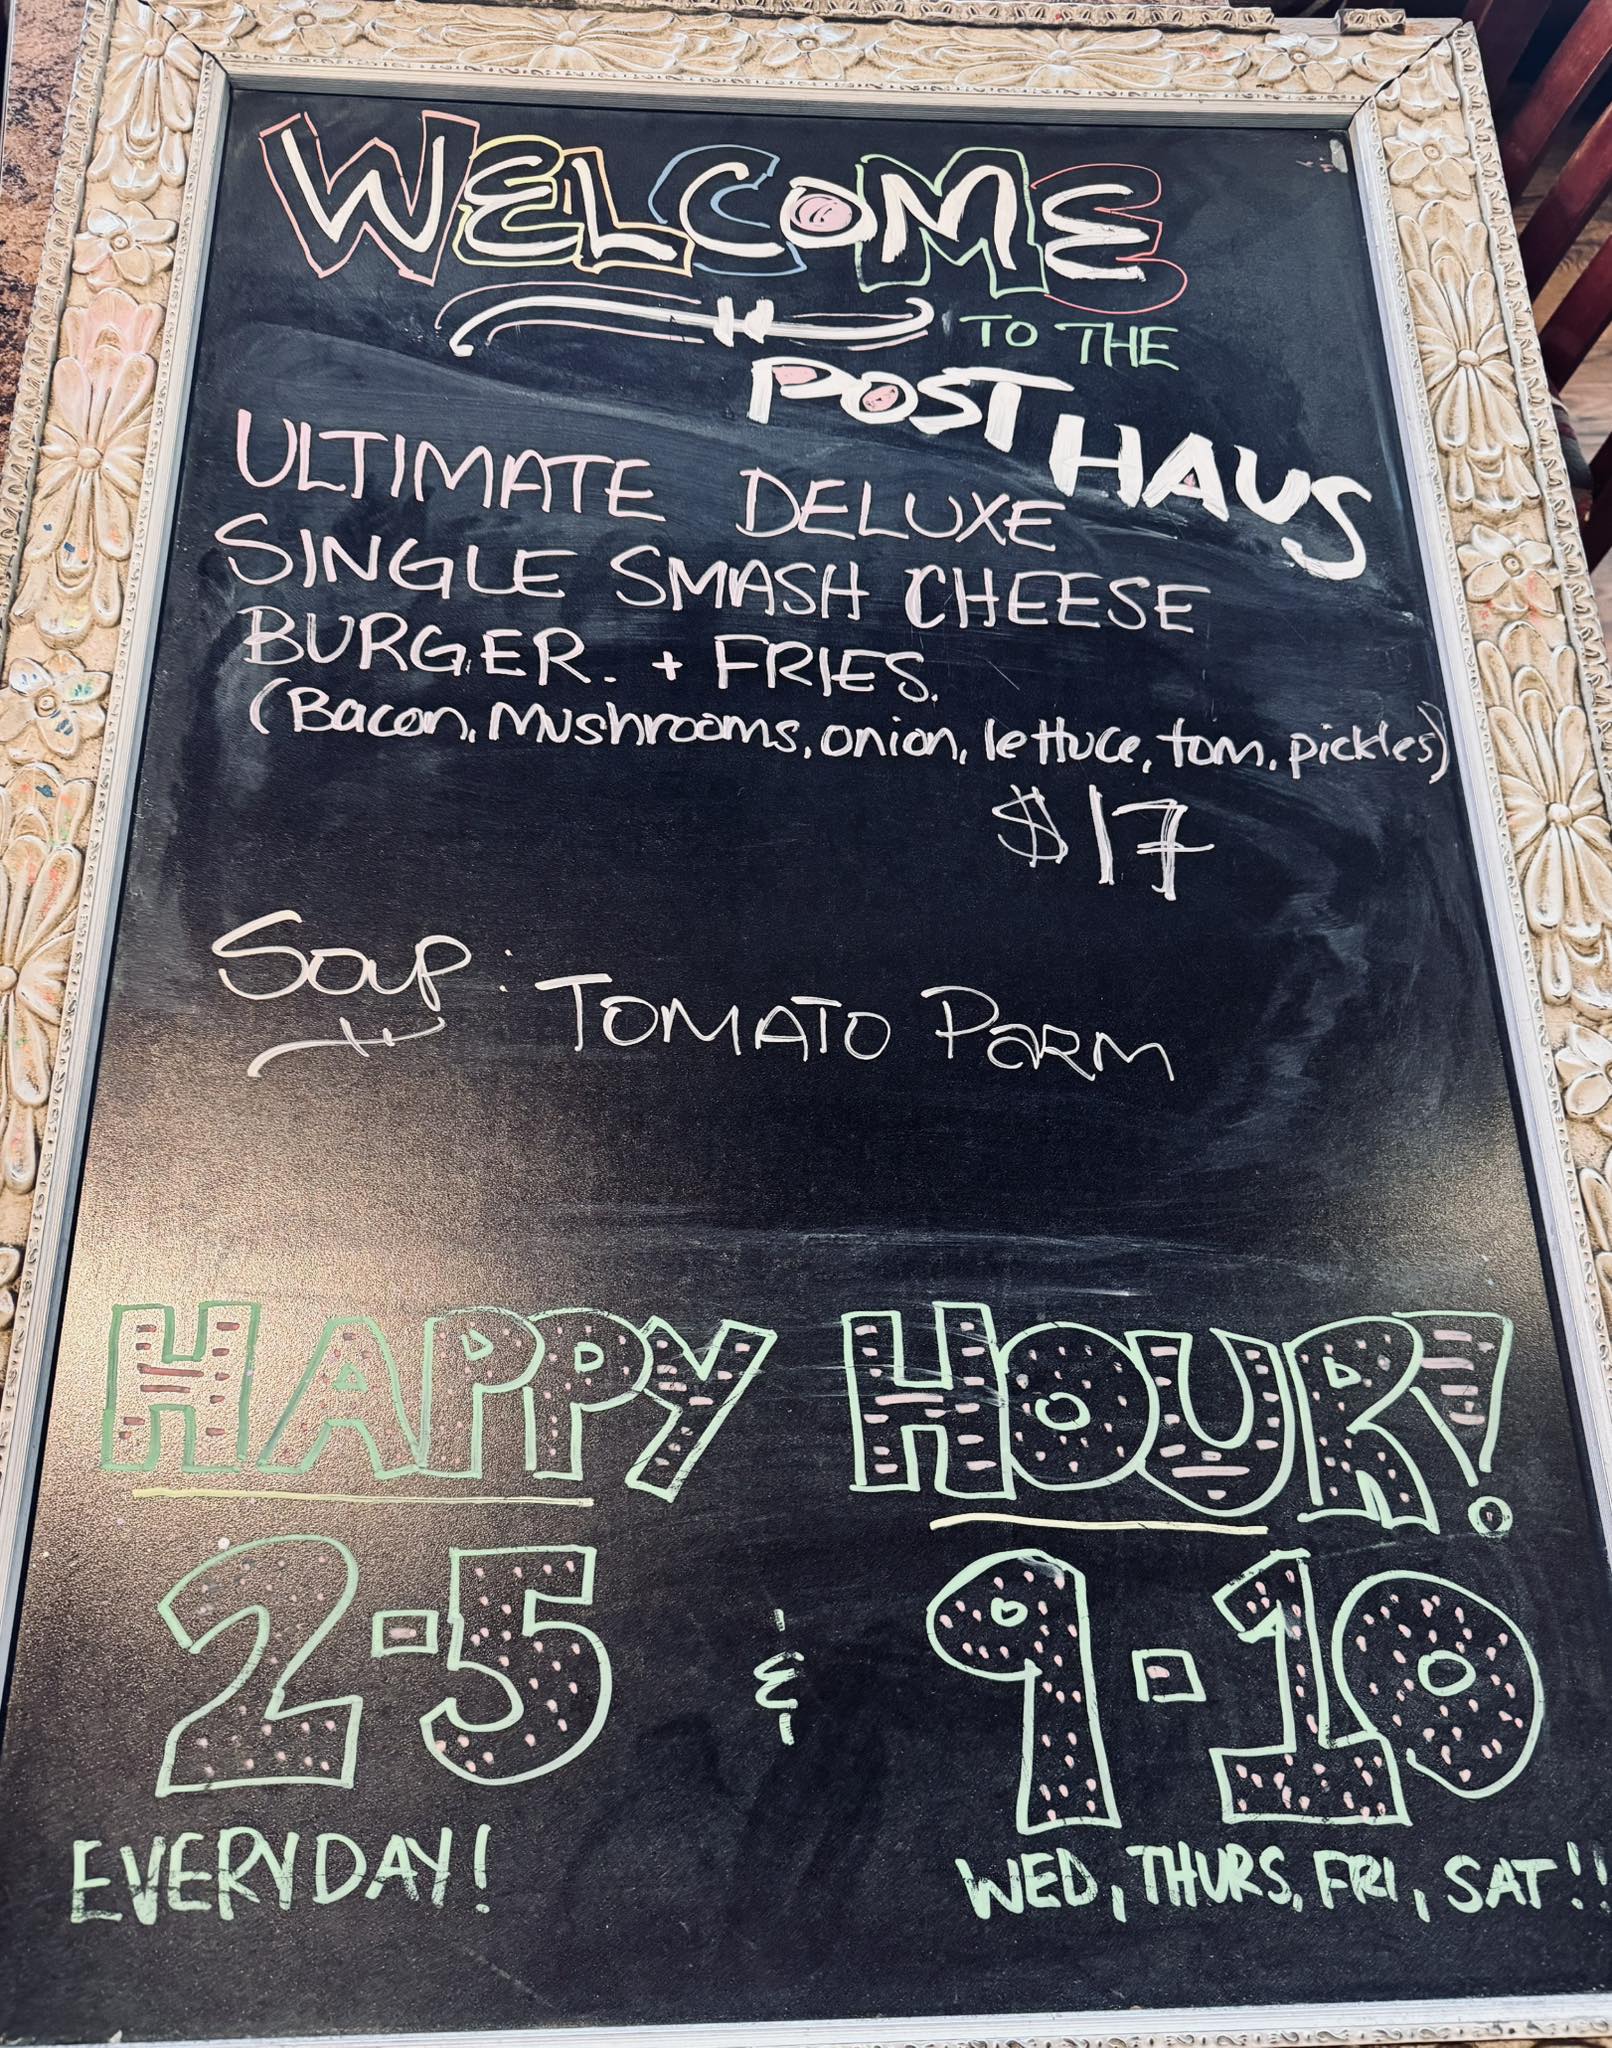 WELCOME
TO THE
POST HAUS
ULTIMATE DELUXE
SINGLE SMASH CHEESE
BURGER. + FRIES.
(Bacon, Mushrooms, onion, lettuce, tom, pickles)
$17
Soup: TOMATO PARM
HAPPY HOUR!
2-5 & 9-10
EVERYDAY! WED, THURS, FRI, SAT!!